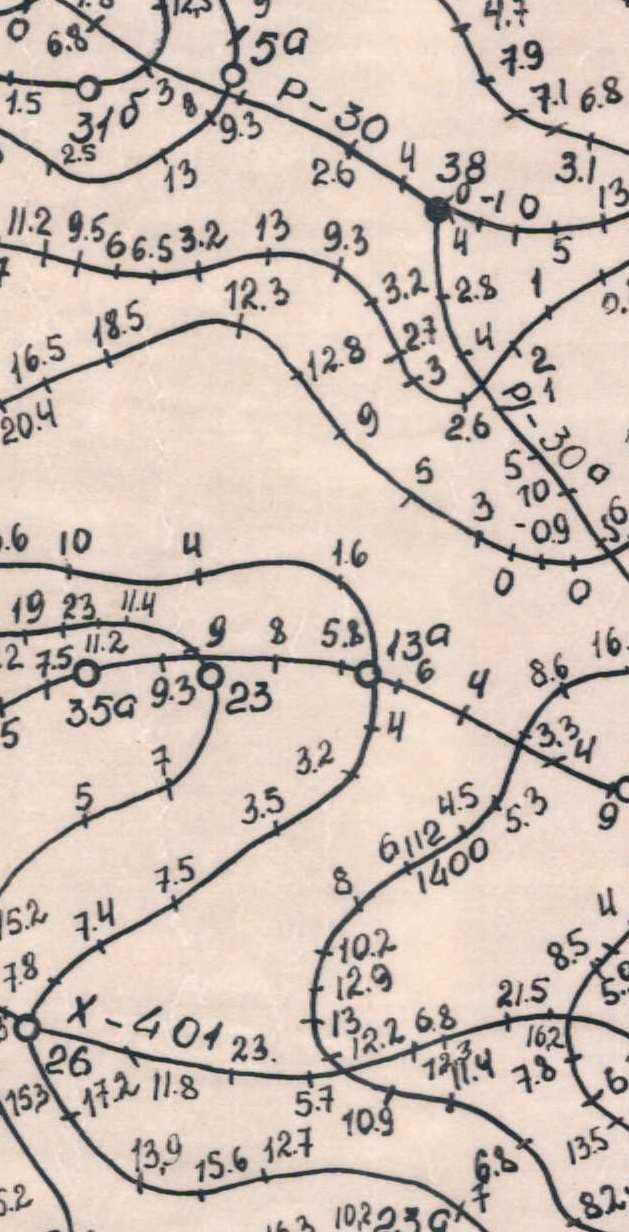 12,5
9
6.8
5а
4.7
7.9
1.5
31б
3
8
9.3
Р-30
7.1
6.8
2.5
13
2.6
4
38
3.1
13
0
-1
0
4
5
11.2
9.5
6
6.5
3.2
13
9.3
3.2
2.8
1
12.3
18.5
2.7
4
2
16.5
12.8
3
1
20.4
9
2.6
Р1-30а
5
5
10
3
-0.9
5
6
0
0
10
4
1.6
19
23
11.4
11.2
9
8
5.8
13а
16.
7.5
35а
9.3
23
6
4
8.6
5
4
3.3
4
7
3.2
5
3.5
4.5
5.3
9
6112
1400
7.5
8
4
15.2
7.4
10.2
8.5
7.8
12.9
21.5
Х-401
13
12.2
6.8
16.2
26
23.
12.3
11.4
7.8
153
17.2
11.8
5.7
10.9
6
13.9
15.6
12.7
6.8
13.5
7
8.2
10.2
23а